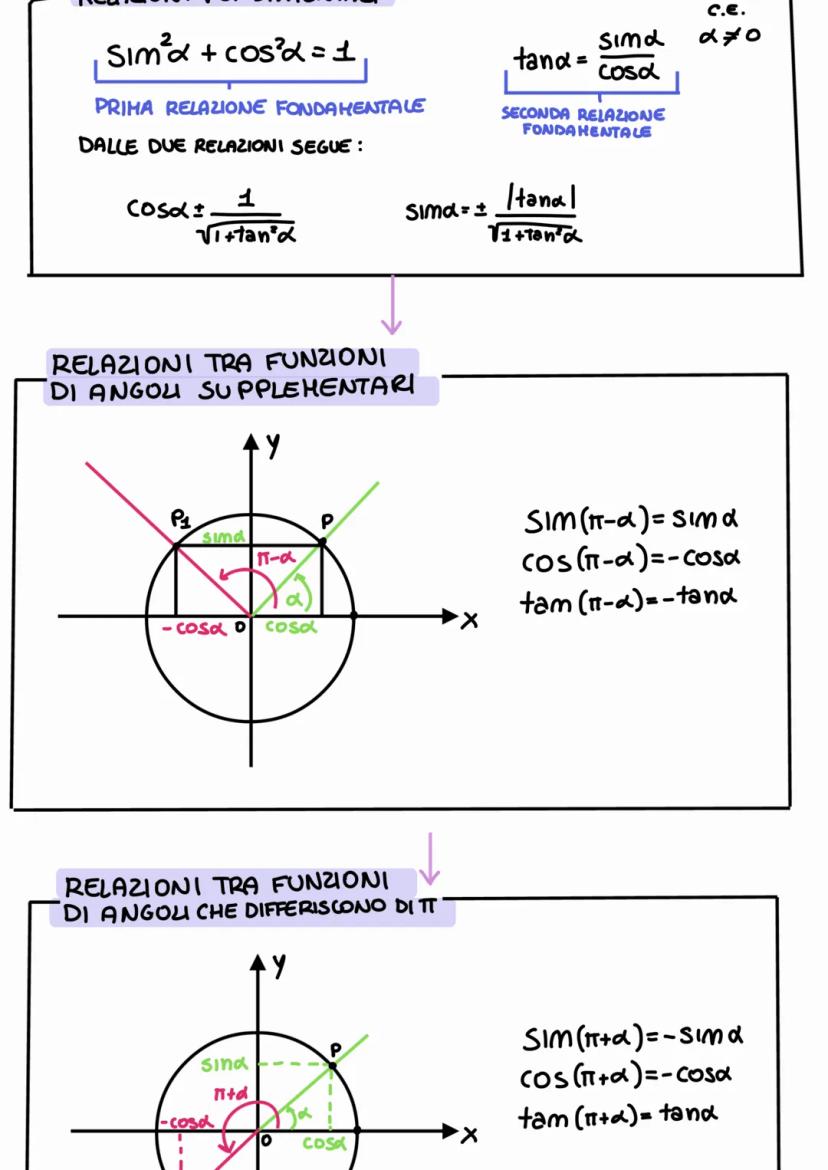 C.E.
sin²α + cos²α = 1
tanα = sinα/cosα
α ≠ 0
PRIMA RELAZIONE FONDAMENTALE
SECONDA RELAZIONE
FONDAMENTALE
DALLE DUE RELAZIONI SEGUE:
cosα ± 1/√1+tan²α
sinα = ± |tanα|/√1+tan²α
RELAZIONI TRA FUNZIONI
DI ANGOLI SUPPLEMENTARI
y
P1
P
sinα
π-α
α
-cosα
O
cosα
x
sin(π-α) = sinα
cos(π-α) = -cosα
tan(π-α) = -tanα
RELAZIONI TRA FUNZIONI
DI ANGOLI CHE DIFFERISCONO DI π
y
P
sinα
π+α
-cosα
α
O
cosα
x
sin(π+α) = -sinα
cos(π+α) = -cosα
tan(π+α) = tanα